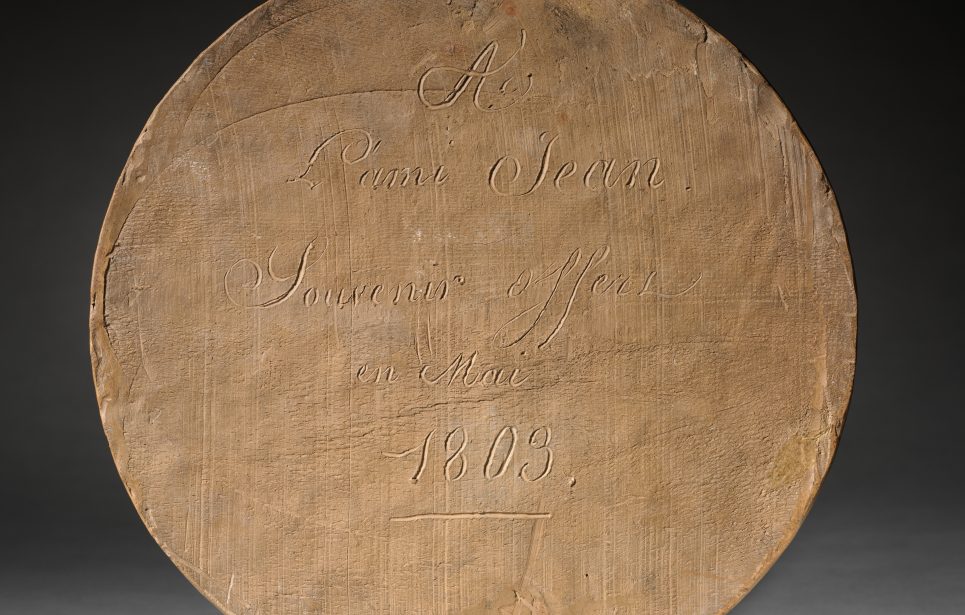 A
L'ami Jean
Souvenir offert
en Mai
1803.